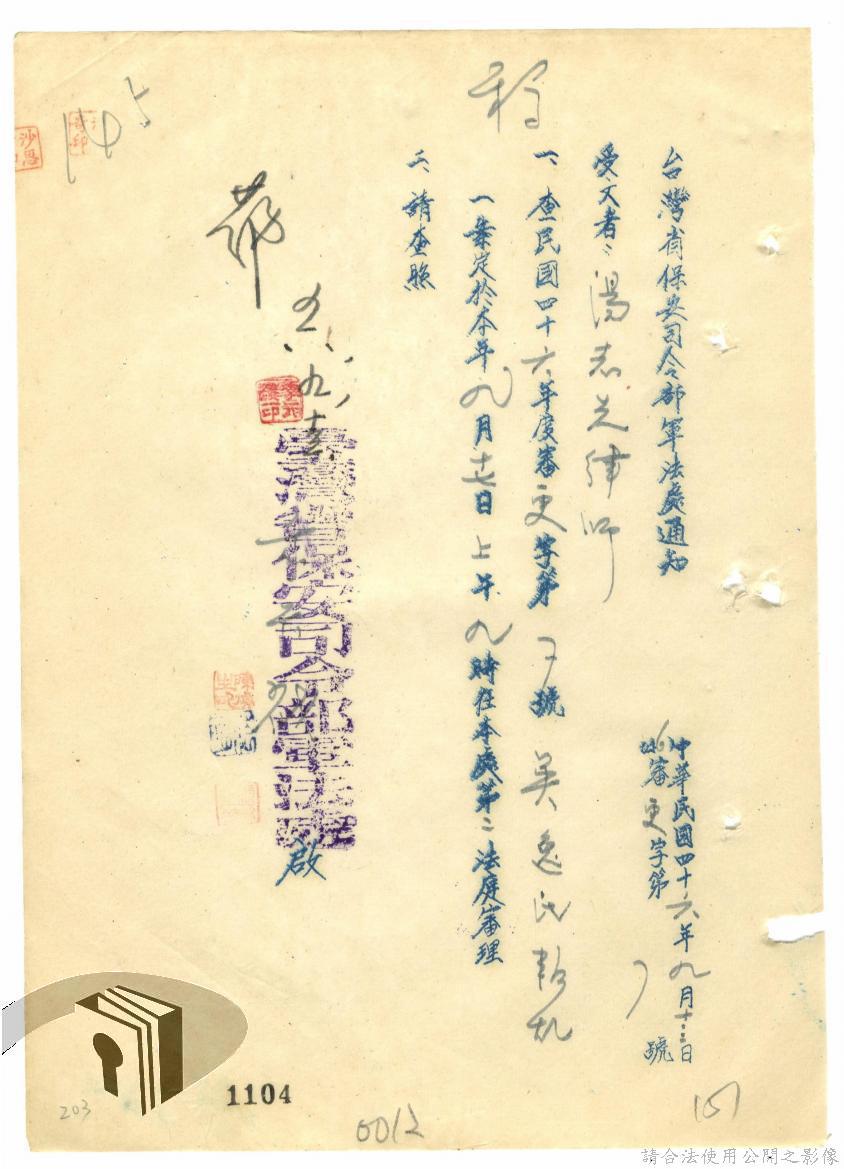 稿
台灣省保安司令部軍法處通知
中華民國四十六年九月十三日
審更字第 號
受文者：湯志先律師
一、查民國四十六年度審更字第 號 吳逸民叛亂
一案定於本年九月十七日上午九時在本處第二法庭審理
二、請查照
臺灣省保安司令部軍法處
啟
145
1104
0012
203
151
請合法使用公開之影像